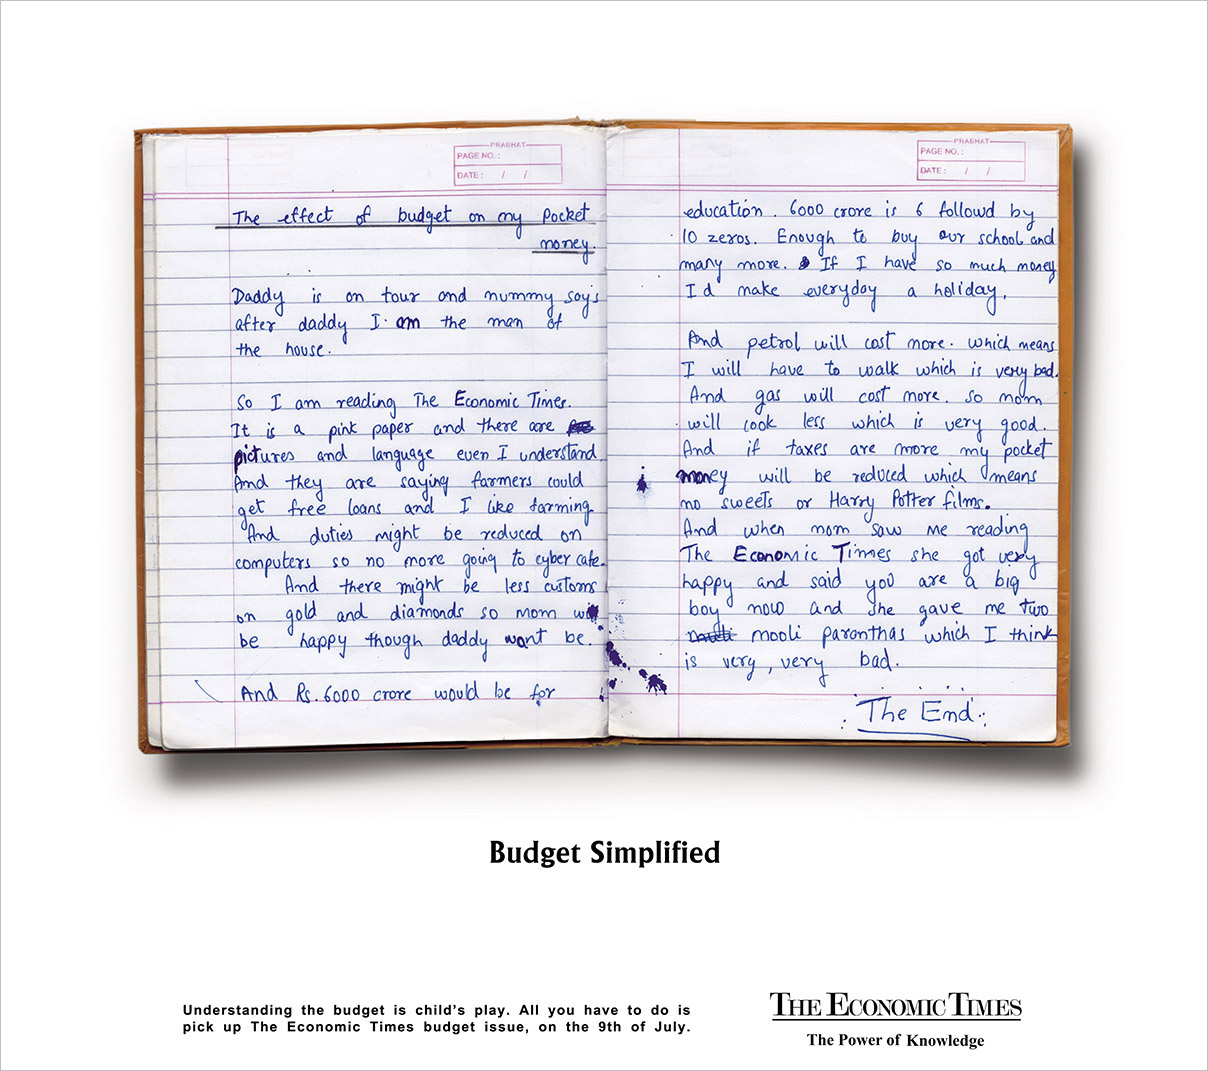 PRABHAT
PAGE NO. :
DATE : / /
The effect of budget on my pocket
money.
Daddy is on tour and mummy say's
after daddy I am the man of
the house.
So I am reading The Economic Times.
It is a pink paper and there are
pictures and language even I understand
And they are saying farmers could
get free loans and I like farming
And duties might be reduced on
computers so no more going to cyber cafe.
And there might be less customs
on gold and diamonds so mom will
be happy though daddy wont be.
And Rs. 6000 crore would be for
PRABHAT
PAGE NO. :
DATE : / /
education. 6000 crore is 6 followd by
10 zeros. Enough to buy our school and
many more. If I have so much money
I'd make everyday a holiday.
And petrol will cost more. which means
I will have to walk which is very bad.
And gas will cost more. so mom
will cook less which is very good.
And if taxes are more my pocket
money will be reduced which means
no sweets or Harry Potter films.
And when mom saw me reading
The Economic Times she got very
happy and said you are a big
boy now and she gave me two
mooli paronthas which I think
is very, very bad.
The End
Budget Simplified
Understanding the budget is child's play. All you have to do is
pick up The Economic Times budget issue, on the 9th of July.
THE ECONOMIC TIMES
The Power of Knowledge